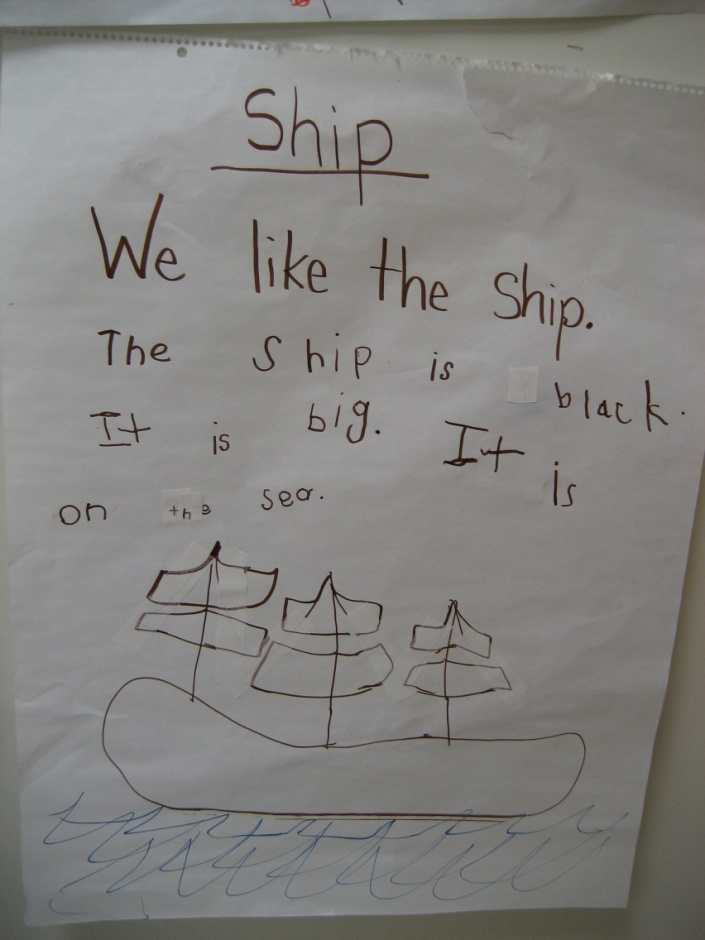 Ship
We like the Ship.
The Ship is black.
It is big. It is
on the sea.